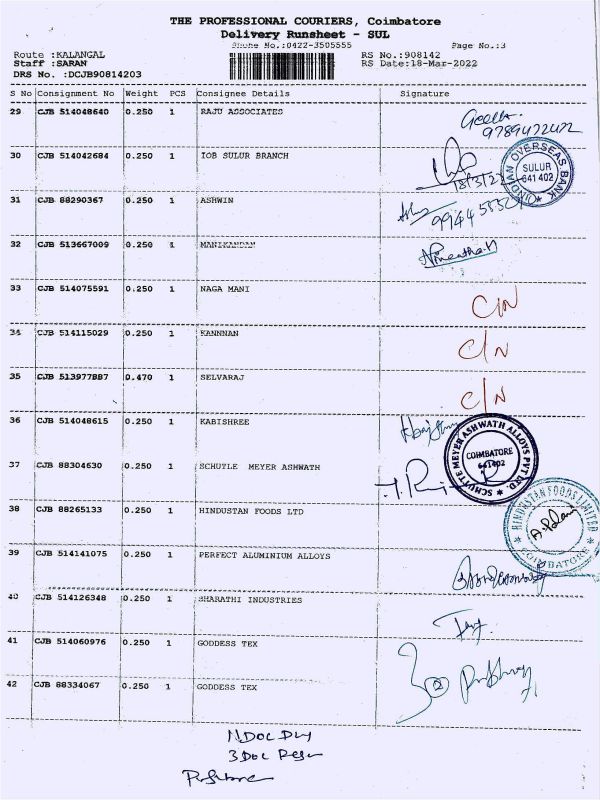 THE PROFESSIONAL COURIERS, Coimbatore
Delivery Runsheet - SUL
Phone No.:0422-3505555 Page No.:3
Route :KALANGAL RS No.:908142
Staff :SARAN RS Date:18-Mar-2022
DRS No. :DCJB90814203
S No Consignment No Weight PCS Consignee Details Signature
29 CJB 514048640 0.250 1 RAJU ASSOCIATES Geetha.
9789422422
30 CJB 514042684 0.250 1 IOB SULUR BRANCH
18/3/22
INDIAN OVERSEAS BANK
SULUR
641 402
31 CJB 88290367 0.250 1 ASHWIN
32 CJB 513667009 0.250 1 MANIKANDAN
33 CJB 514075591 0.250 1 NAGA MANI C/N
34 CJB 514115029 0.250 1 KANNNAN C/N
35 CJB 513977887 0.470 1 SELVARAJ C/N
36 CJB 514048615 0.250 1 KABISHREE
37 CJB 88304630 0.250 1 SCHUTLE MEYER ASHWATH
SCHUTTE MEYER ASHWATH ALLOYS PVT LTD.
COIMBATORE
641402
38 CJB 88265133 0.250 1 HINDUSTAN FOODS LTD
HINDUSTAN FOODS LIMITED
COIMBATORE
39 CJB 514141075 0.250 1 PERFECT ALUMINIUM ALLOYS
40 CJB 514126348 0.250 1 BHARATHI INDUSTRIES
41 CJB 514060976 0.250 1 GODDESS TEX
42 CJB 88334067 0.250 1 GODDESS TEX
2
11 DOC Dly
3 DOC